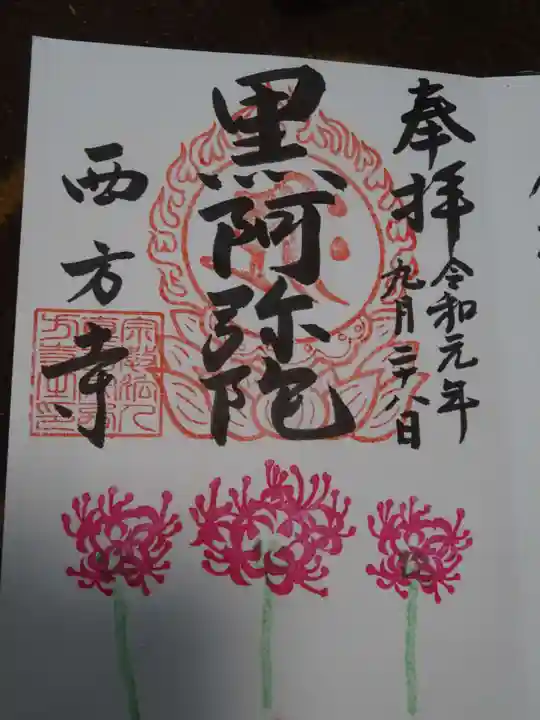 奉拝
令和元年
九月二十八日
黒阿弥陀
西方寺